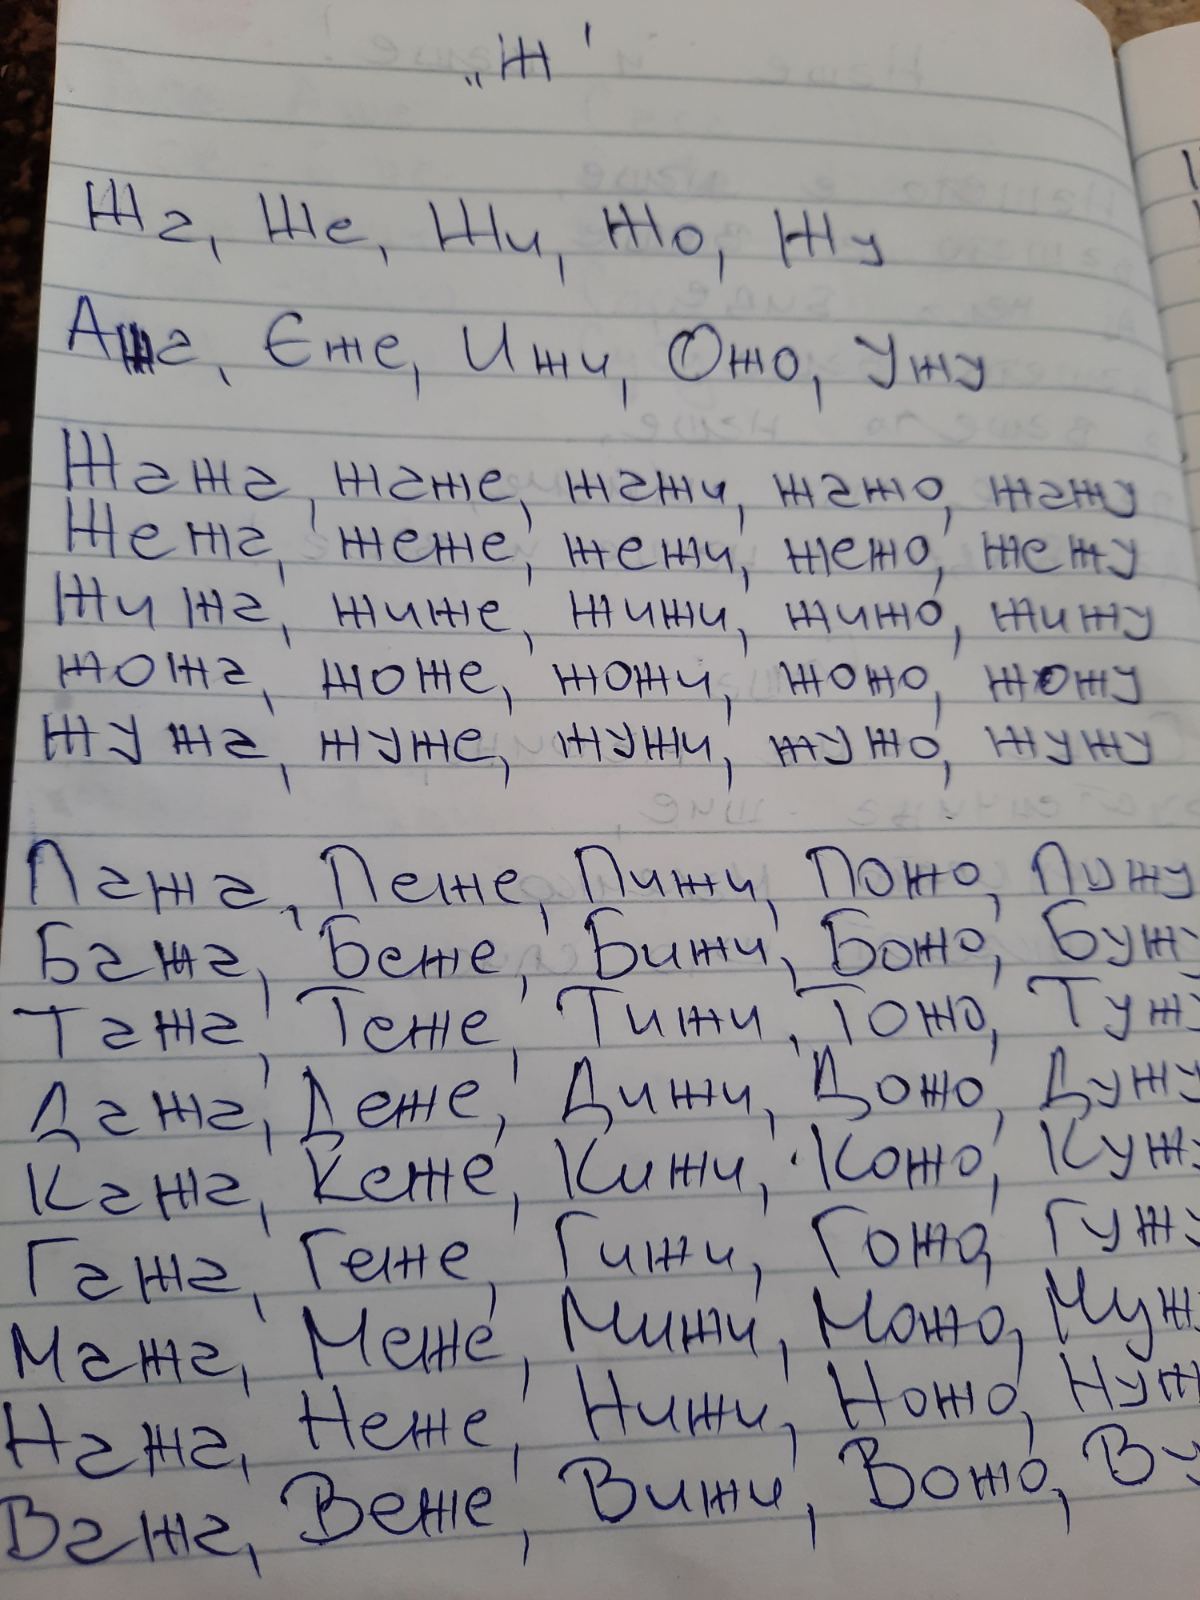 „Ж'
Жа, Же, Жи, Жо, Жу
Ажа, Еже, Ижи, Ожо, Ужу
Жажа, жаже, жажи, жажо, жажу
Жежа, жеже, жежи, жежо, жежу
Жижа, жиже, жижи, жижо, жижу
жожа, жоже, жожи, жожо, жожу
жужа, жуже, жужи, жужо, жужу
Пажа, Пеже, Пижи, Пожо, Пужу
Бажа, Беже, Бижи, Божо, Бужу
Тажа, Теже, Тижи, Тожо, Тужу
Дажа, Деже, Дижи, Дожо, Дужу
Кажа, Кеже, Кижи, Кожо, Кужу
Гажа, Геже, Гижи, Гожо, Гужу
Мажа, Меже, Мижи, Можо, Муж
Нажа, Неже, Нижи, Ножо, Нуж
Важа, Веже, Вижи, Вожо, Ву